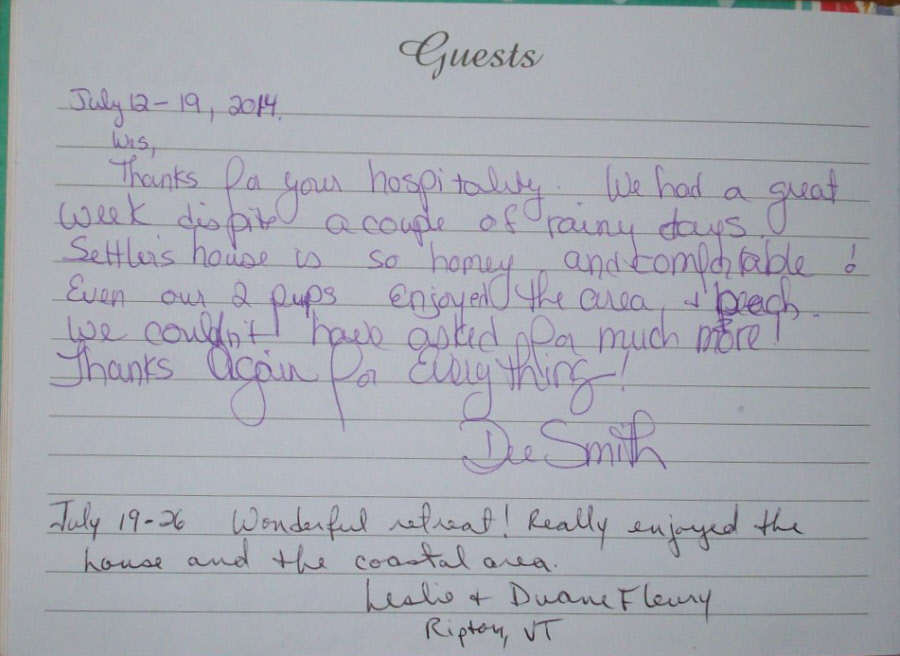 Guests
July 12-19, 2014.
Wis,
Thanks for your hospitality. We had a great
week dispite a couple of rainy days.
Settler's house is so homey and comfortable!
Even our 2 pups enjoyed the area & beach.
We couldn't have asked for much more!
Thanks Again for Everything!
Dee Smith
July 19-26 Wonderful retreat! Really enjoyed the
house and the coastal area.
Leslie + Duane Fleury
Ripton, VT